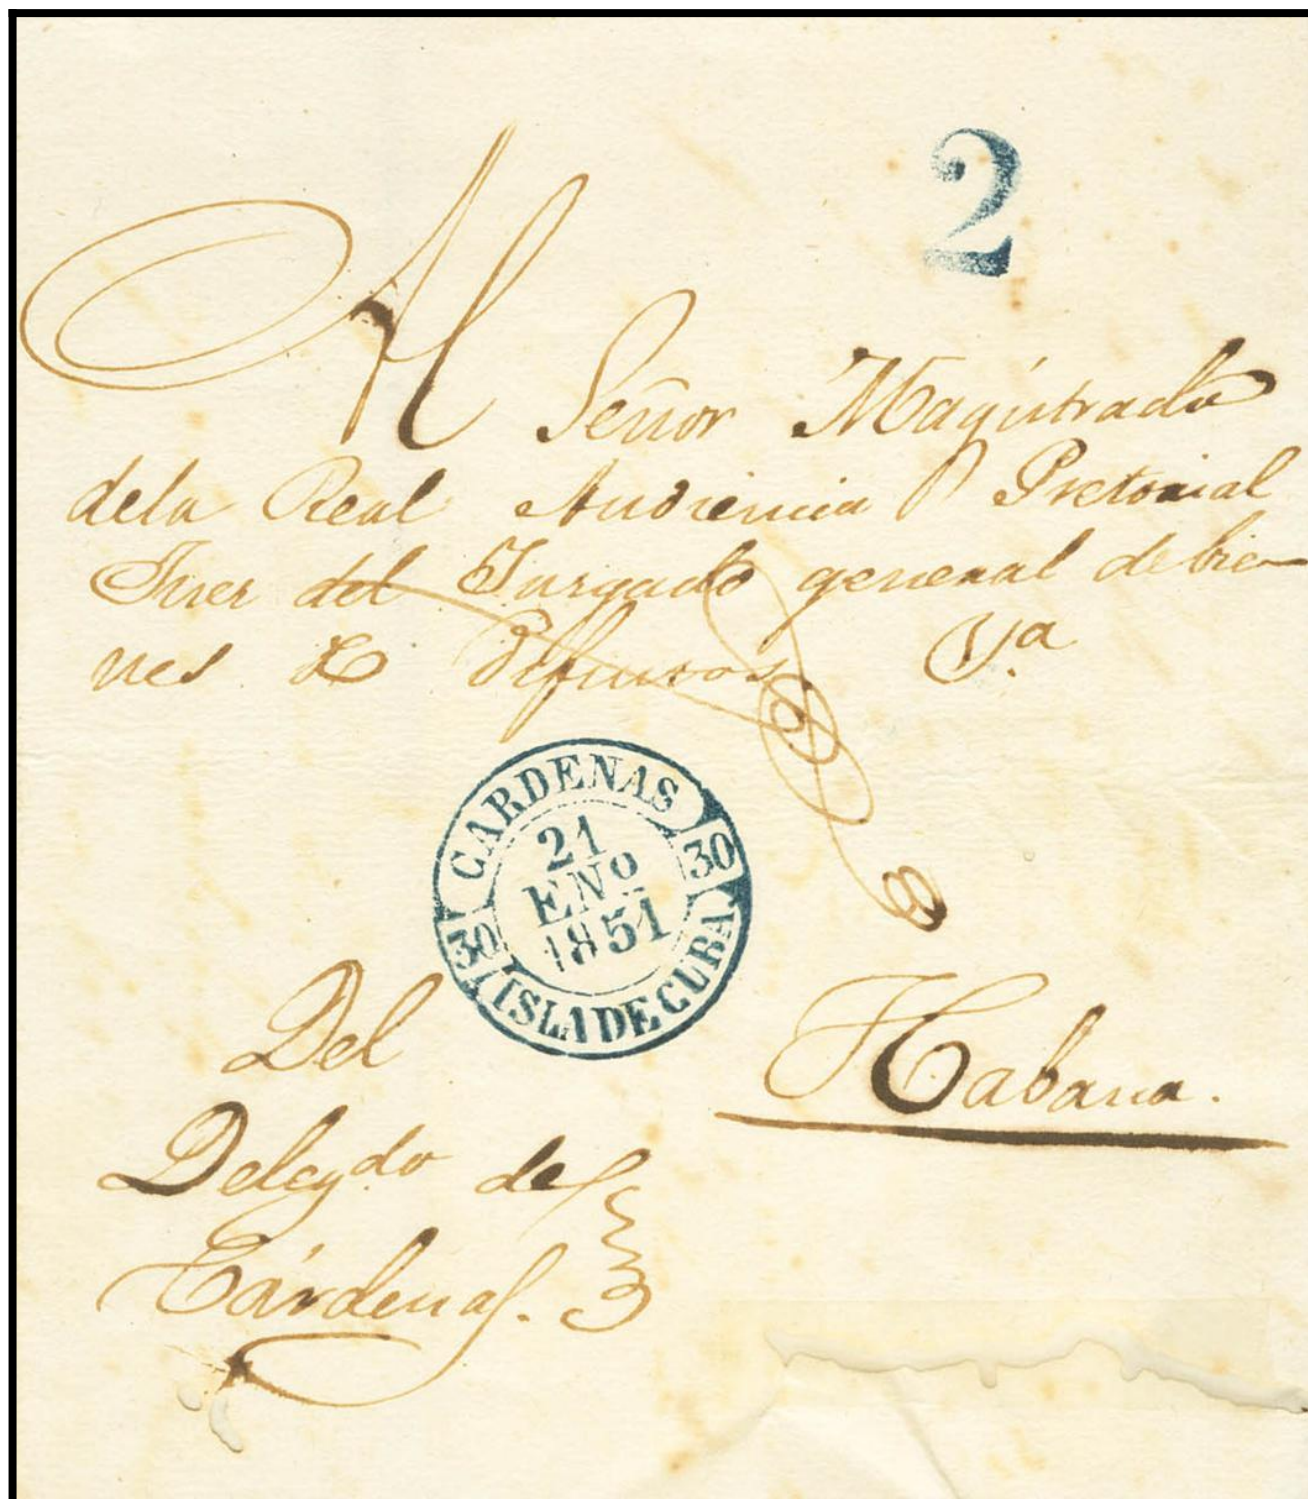 2
Al Señor Magistrado
dela Real Audiencia Pretorial
Juez del Juzgado general de bie-
nes de Difuntos Yª
CARDENAS
30
21
ENº
1851
30
ISLA DE CUBA
Del
Habana.
Delegdo de
Cárdenas.